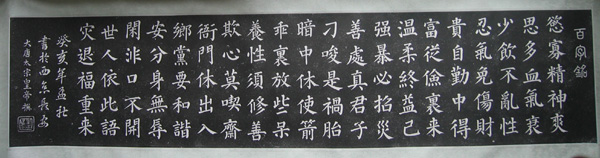 百字銘
慾寡精神爽
思多血氣衰
少飲不亂性
忍氣免傷財
貴自勤中得
富從儉裏來
溫柔終益己
强暴必招災
善處真君子
刁唆是禍胎
暗中休使箭
乖裏放些呆
養性須修善
欺心莫喫齋
衙門休出入
鄉黨要和諧
安分身無辱
閑非口不開
世人依此語
灾退福重来
癸亥年孟秋
書於西京長安
大唐太宗皇帝撰